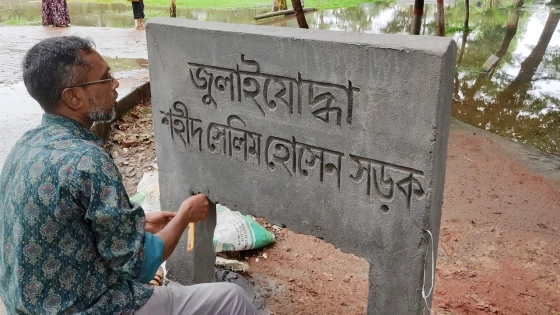 জুলাইযোদ্ধা
শহীদ সেলিম হোসেন সড়ক